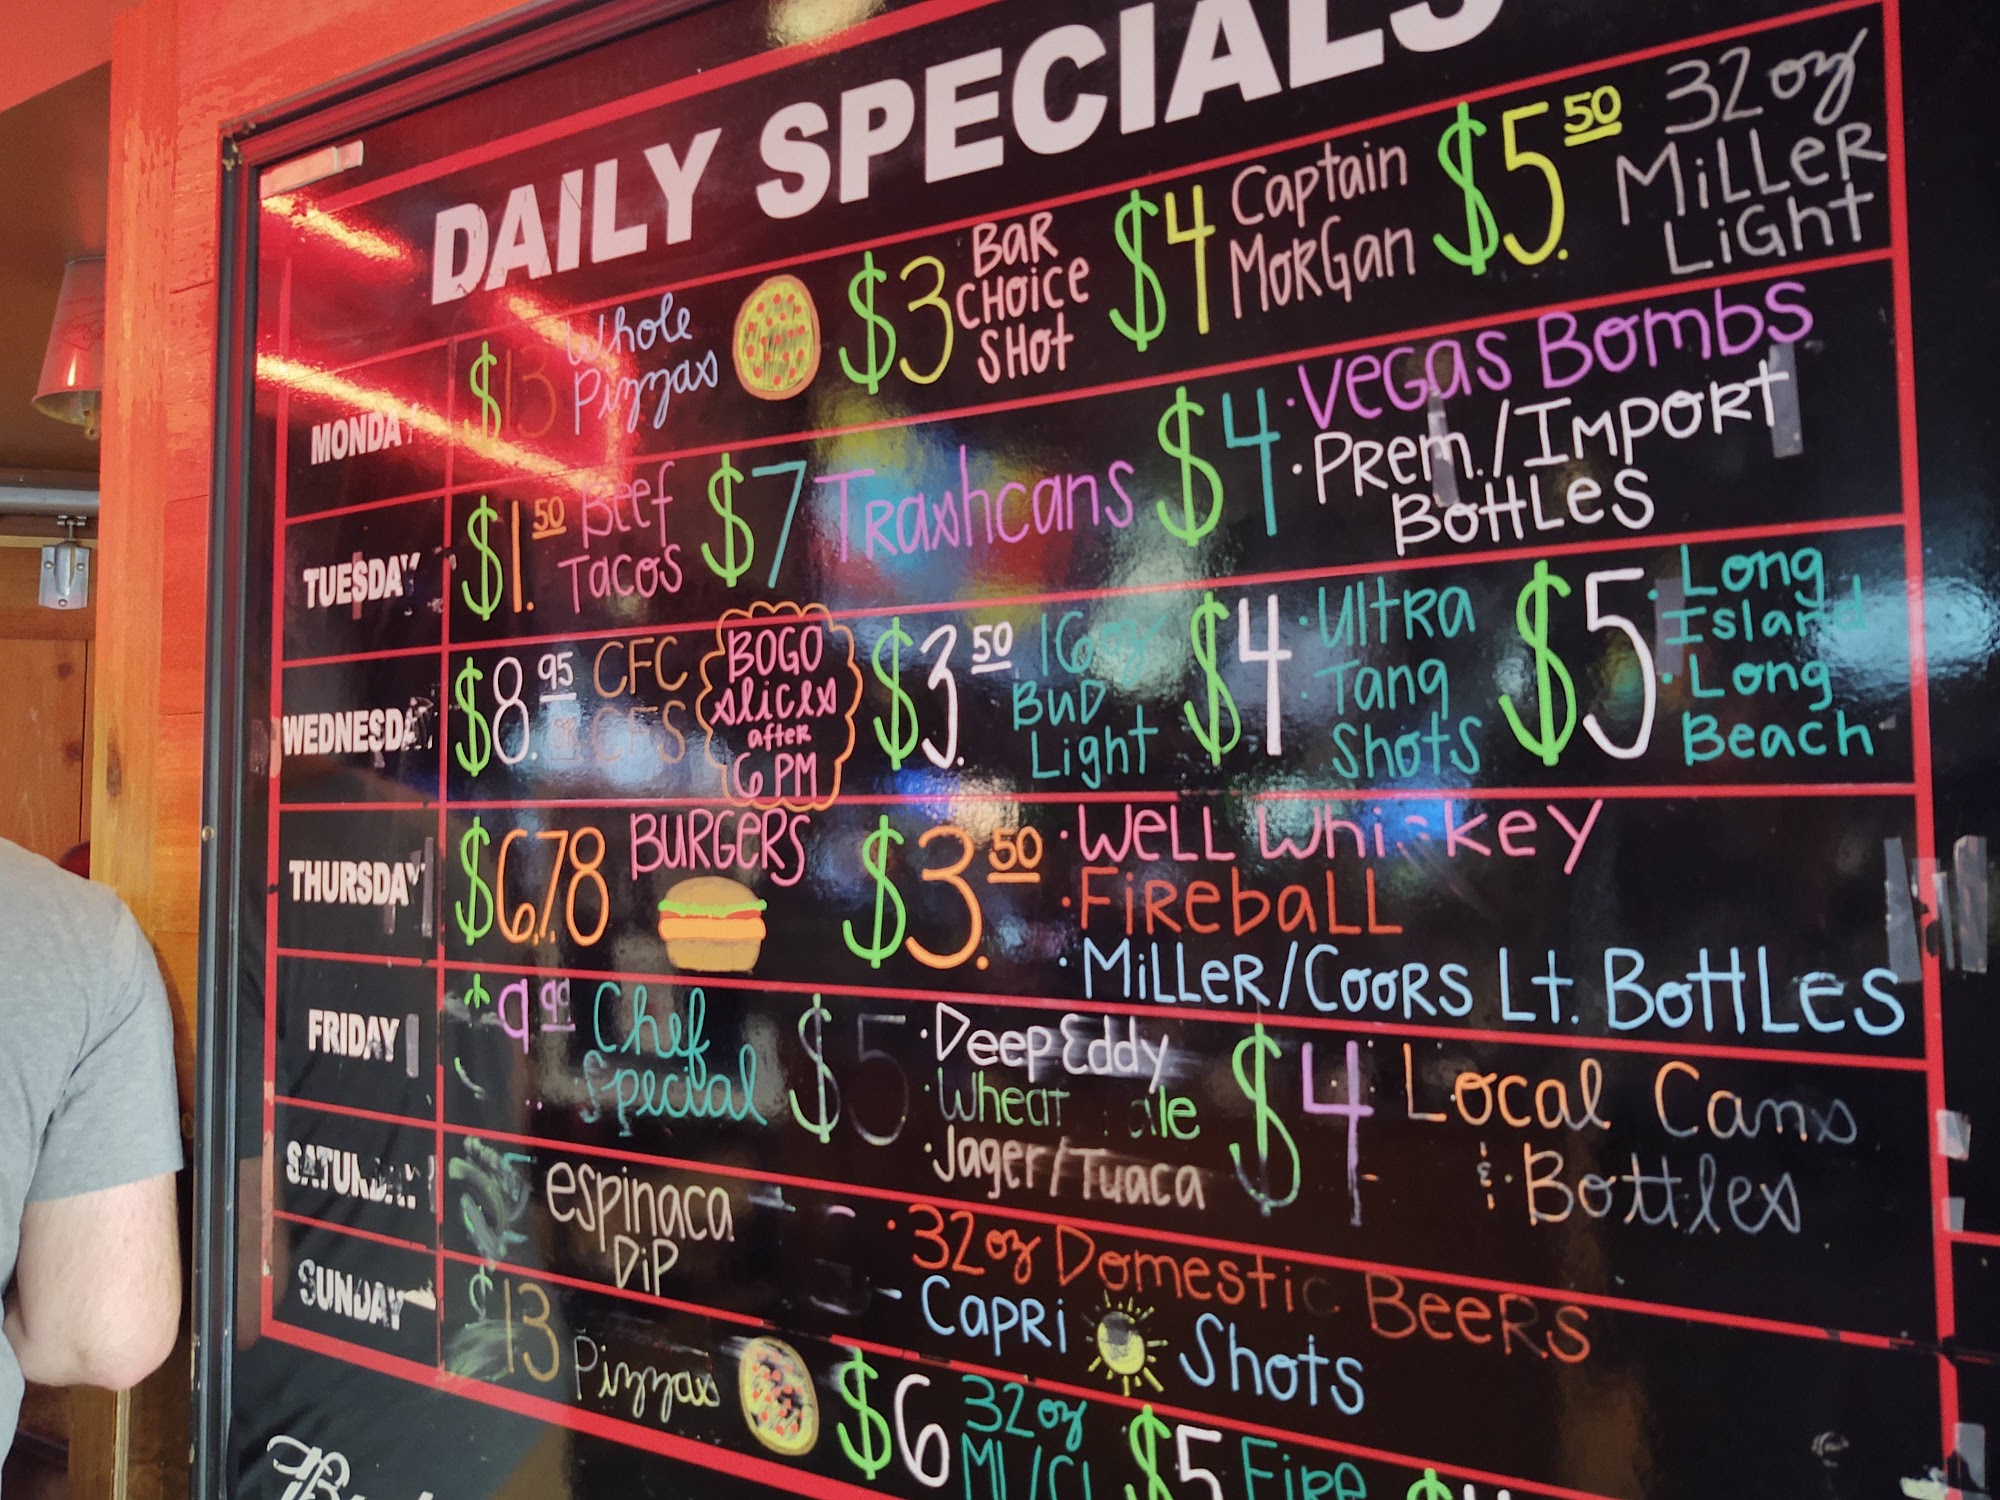 DAILY SPECIALS
MONDAY
$13 Whole
Pizzas
$3 BAR
CHOICE
SHOt
$4 Captain
MORGAN
$5.50 32oz
MiLLeR
LiGHt
TUESDAY
$1.50 Beef
Tacos
$7 Trashcans
$4 ·VEGAS BOMBS
·PRem./IMPORT
BOttLeS
WEDNESDAY
$8.95 CFC
or CFS
BOGO
slices
after
6 PM
$3.50 16oz
BUD
Light
$4 ·Ultra
·Tang
Shots
$5 ·Long
Island
·Long
Beach
THURSDAY
$6.78 BURGERS
$3.50 ·WeLL Whiskey
·FiRebaLL
·MiLLeR/COORS Lt. BottLes
FRIDAY
9.99 Chef
Special
$5 ·Deep Eddy
·Wheat ale
·Jager/Tuaca
$4 Local Cans
& Bottles
SATURDAY
espinaca
Dip
·32oz Domestic BeeRS
-CapRi Shots
SUNDAY
$13 Pizzas
$6 32oz
ML/CL
$5 FiRe